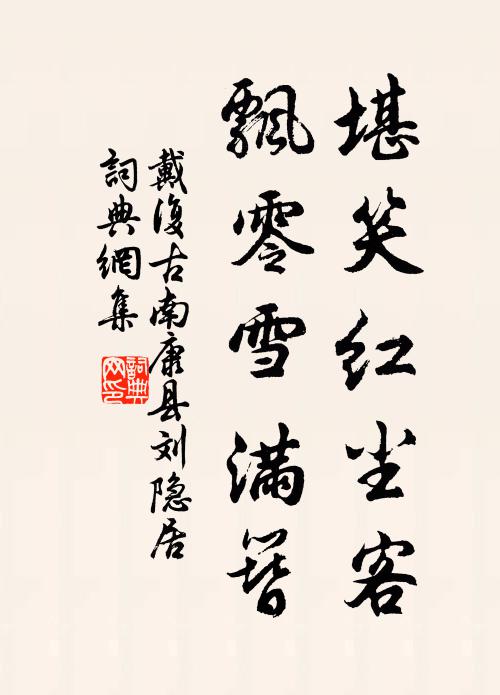 堪笑红尘客
飘零雪满簪
戴復古南康县刘隐居
詞典網集
詞典网印